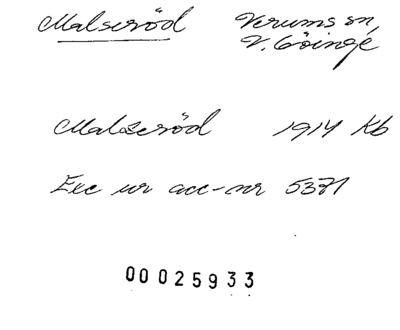 Malseröd Verums sn,
V. Göinge
Malseröd 1914 Kb
Exc ur acc-nr 5371
00025933